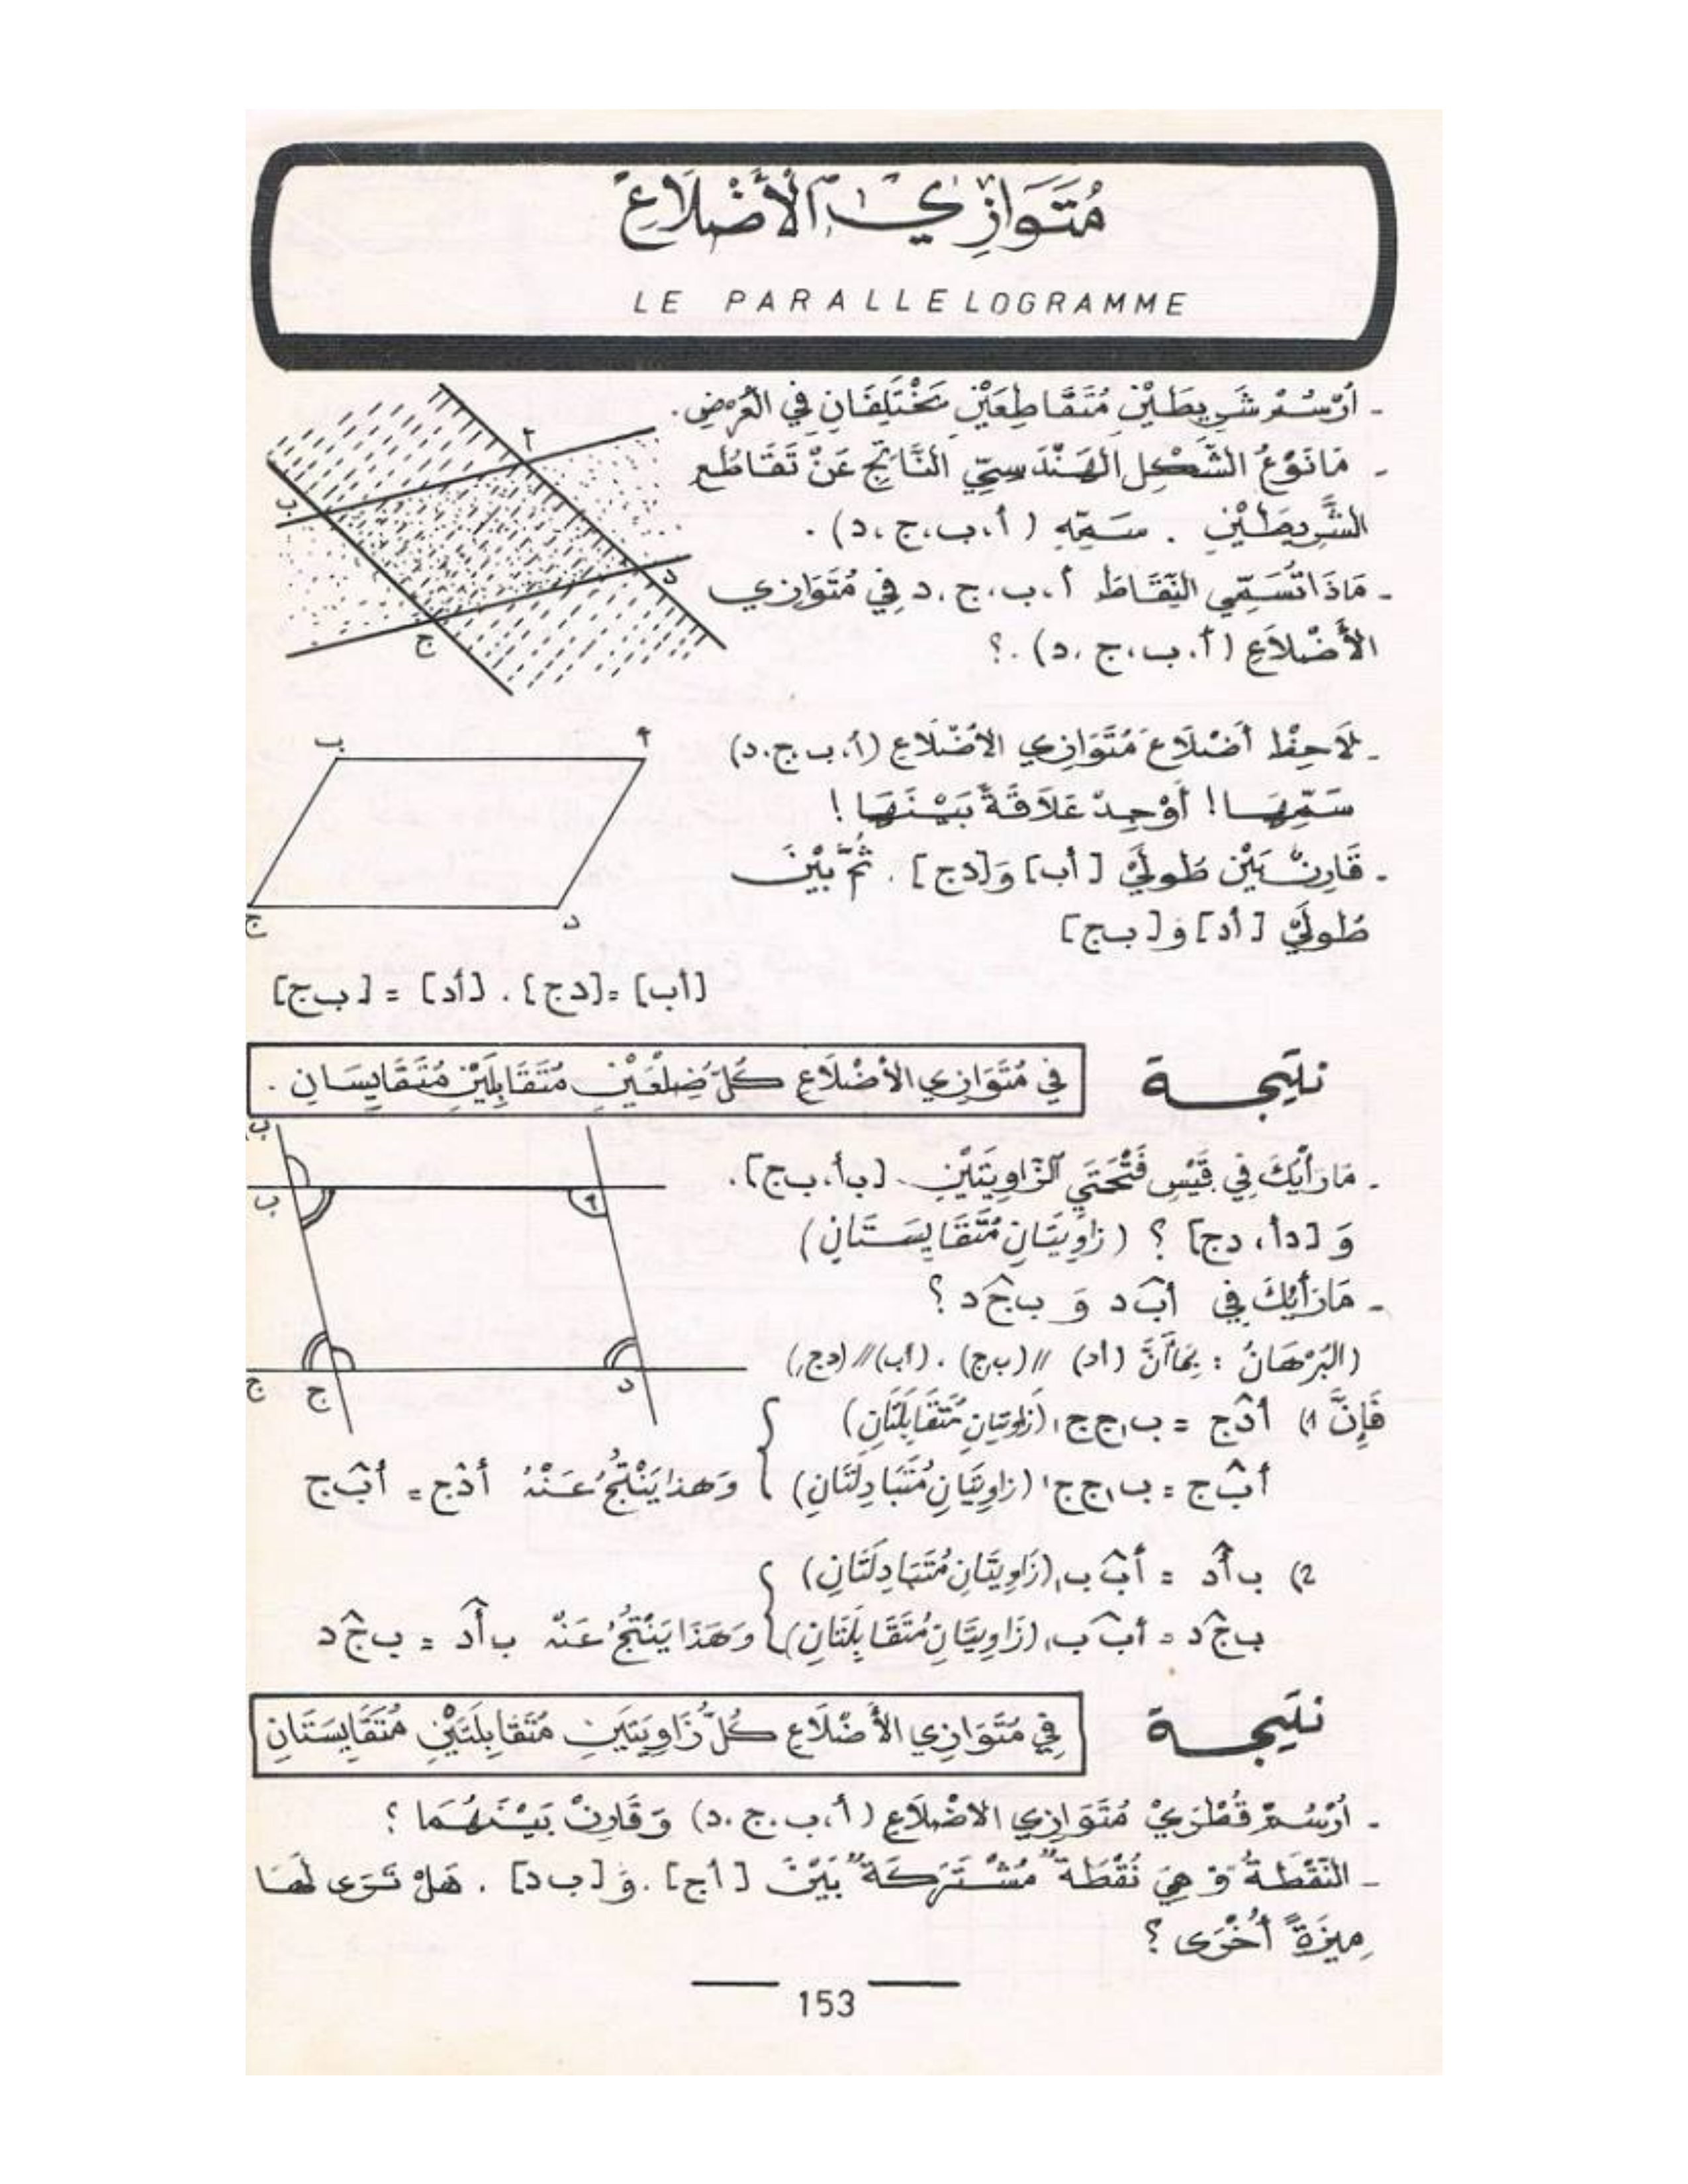 مُتَوَازِي الأَضْلَاعِ
LE PARALLELOGRAMME
- أُرْسُمْ شَرِيطَيْنِ مُتَقَاطِعَيْنِ يَخْتَلِفَانِ فِي العَرْضِ.
- مَا نَوْعُ الشَّكْلِ الهَنْدَسِيِّ النَّاتِجِ عَنْ تَقَاطُعِ
الشَّرِيطَيْنِ . سَمِّهِ (أ،ب،ج،د) .
- مَاذَا تُسَمِّي النِّقَاطَ أ،ب،ج،د فِي مُتَوَازِي
الأَضْلَاعِ (أ،ب،ج،د) .؟
أ
ب
د
ج
- لَاحِظْ أَضْلَاعَ مُتَوَازِي الأَضْلَاعِ (أ،ب،ج،د)
سَمِّهَا ! أَوْجِدْ عَلَاقَةً بَيْنَهَا !
- قَارِنْ بَيْنَ طُولَيْ [أب] وَ[دج] . ثُمَّ بَيْنَ
طُولَيْ [أد] وَ[بج]
ب أ
ج د
[أب] = [دج] . [أد] = [ب ج]
نتيجة
في مُتَوَازِي الأَضْلَاعِ كُلُّ ضِلْعَيْنِ مُتَقَابِلَيْنِ مُتَقَايِسَانِ .
- مَا رَأْيُكَ فِي قَيْسِ فَتْحَتَيِ الزَّاوِيَتَيْنِ [بأ،ب ج].
وَ [دأ، دج] ؟ (زاوِيَتَانِ مُتَقَايِسَتَانِ)
- مَا رَأْيُكَ فِي أبَ̂د وَ بجَ̂د ؟
(البُرْهَانُ : بِمَا أَنَّ (أد) // (ب ج) . (أب) // (دج))
فَإِنَّ 1) أدَ̂ج = ب₁ج̂ج₁ (زاويتان مُتَقَابِلَتَانِ)
أبَ̂ج = ب₁ج̂ج₁ (زاوِيَتَانِ مُتَبَادِلَتَانِ) } وَهذا يَنْتُجُ عَنْهُ أدَ̂ج = أبَ̂ج
2) بأَ̂د = أبَ̂ب₁ (زَاوِيَتَانِ مُتَبَادِلَتَانِ)
بجَ̂د = أبَ̂ب₁ (زَاوِيَتَانِ مُتَقَابِلَتَانِ) } وَهَذَا يَنْتُجُ عَنْهُ بأَ̂د = بجَ̂د
ب₁
ب أ
ج₁ ج د
نتيجة
فِي مُتَوَازِي الأَضْلَاعِ كُلُّ زَاوِيَتَيْنِ مُتَقَابِلَتَيْنِ مُتَقَايِسَتَانِ
- أُرْسُمْ قُطْرَيْ مُتَوَازِي الاضْلَاعِ (أ،ب،ج،د) وَقَارِنْ بَيْنَهُمَا ؟
- النُّقْطَةُ وَ هِيَ نُقْطَة "مُشْتَرَكَة" بَيْنَ [أج] . وَ[ب د] . هَلْ تَرَى لَهَا
مِيزَةً أُخْرَى ؟
153